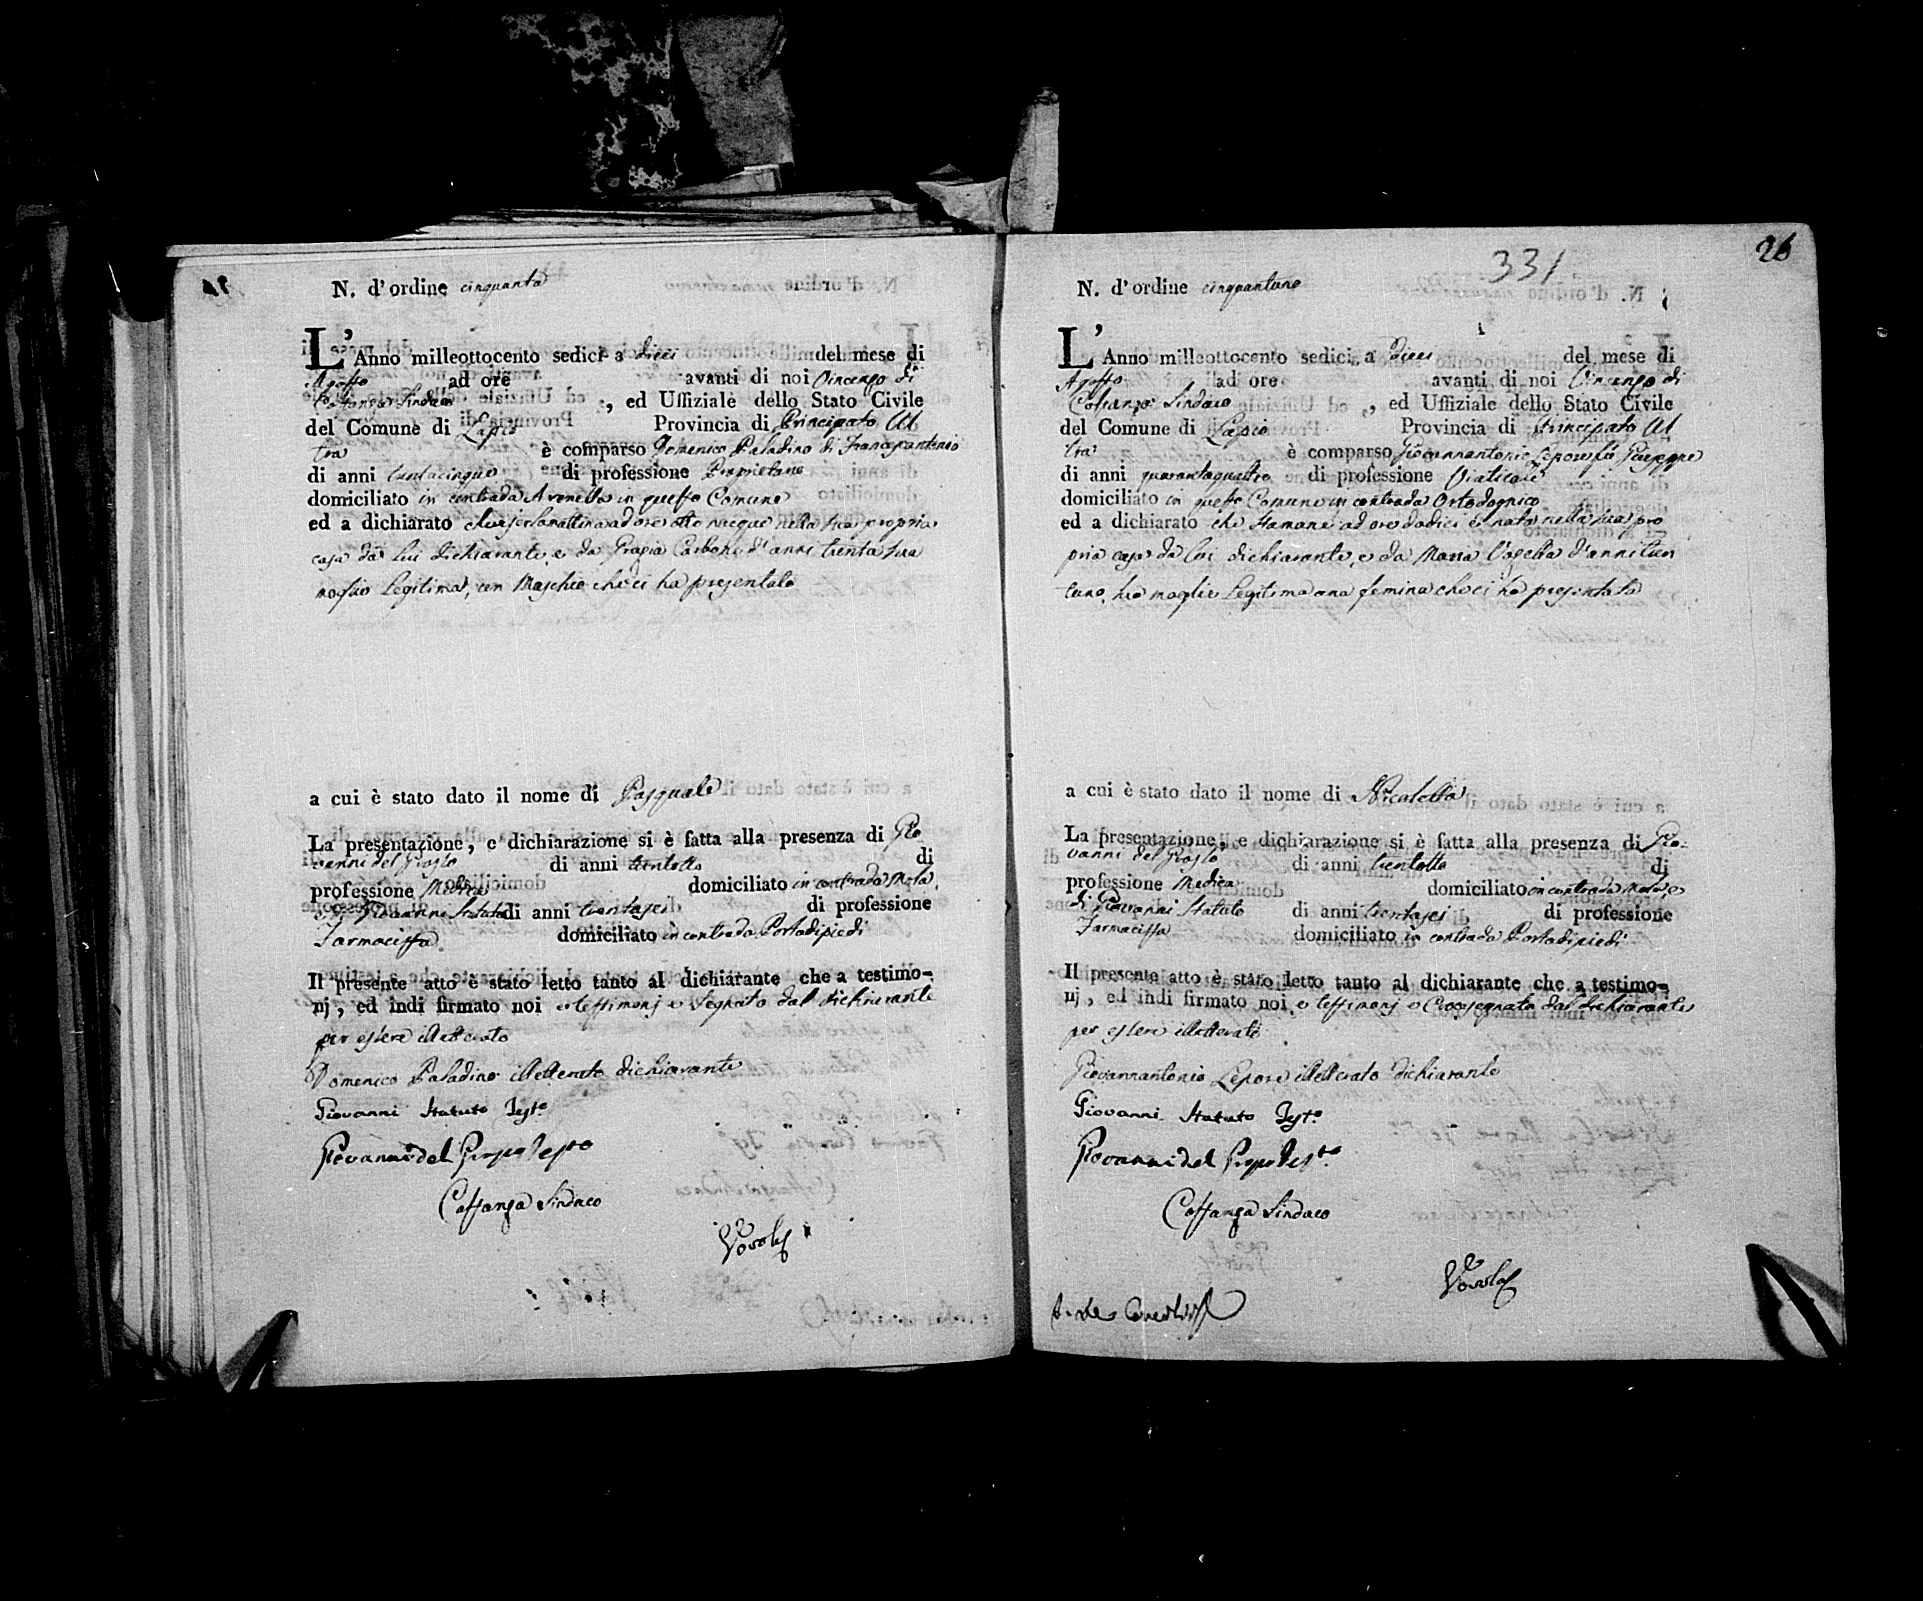 N. d'ordine cinquanta
L'Anno milleottocento sedici a dieci del mese di
Agosto ad ore avanti di noi Vincenzo di
Costanzo Sindaco, ed Uffiziale dello Stato Civile
del Comune di Lapio Provincia di Principato Ul
tra è comparso Domenico Paladino di Francescantonio
di anni trentacinque di professione Proprietario
domiciliato in contrada Arenella in questo Comune
ed a dichiarato che jersera mattina ad ore otto nacque nella sua propria
casa da lui dichiarante, e da Grazia Carbone d'anni trenta sua
moglie legitima, un Maschio che ci ha presentato
a cui è stato dato il nome di Pasquale
La presentazione, e dichiarazione si è fatta alla presenza di Gio
vanni del Grosso di anni trentotto di
professione Medico domiciliato in contrada Mola,
e di Giovanni Statuto di anni trentasei di professione
Farmacista domiciliato in contrada Portadipiedi
Il presente atto è stato letto tanto al dichiarante che a testimo-
nj, ed indi firmato noi e testimonj e segnato dal dichiarante
per essere illetterato
Domenico Paladino illetterato dichiarante
Giovanni Statuto Testo
Giovanni del Grosso Testo
Costanza Sindaco
26
331
N. d'ordine cinquantuno
L'Anno milleottocento sedici a dieci del mese di
Agosto ad ore avanti di noi Vincenzo di
Costanzo Sindaco, ed Uffiziale dello Stato Civile
del Comune di Lapio Provincia di Principato Ul
tra è comparso Giovannantonio Lepore fu Giuseppe
di anni quarantaquattro di professione Viaticale
domiciliato in questo Comune in contrada Ortodognico
ed a dichiarato che stamane ad ore dodici è nata nella sua pro
pria casa da lui dichiarante, e da Maria d'anni tren
tuno, sua moglie legitima una femina che ci ha presentata
a cui è stato dato il nome di Nicoletta
La presentazione, e dichiarazione si è fatta alla presenza di Gio-
vanni del Grosso di anni trentotto di
professione Medico domiciliato in contrada Mola, e
di Giovanni Statuto di anni trentasei, di professione
Farmacista domiciliato in contrada Portadipiedi
Il presente atto è stato letto tanto al dichiarante che a testimo-
nj, ed indi firmato noi, e testimonj e Crocesegnato dal dichiarante
per essere illetterato
Giovannantonio Lepore illetterato dichiarante
Giovanni Statuto Testo
Giovanni del Grosso Testo
Costanza Sindaco